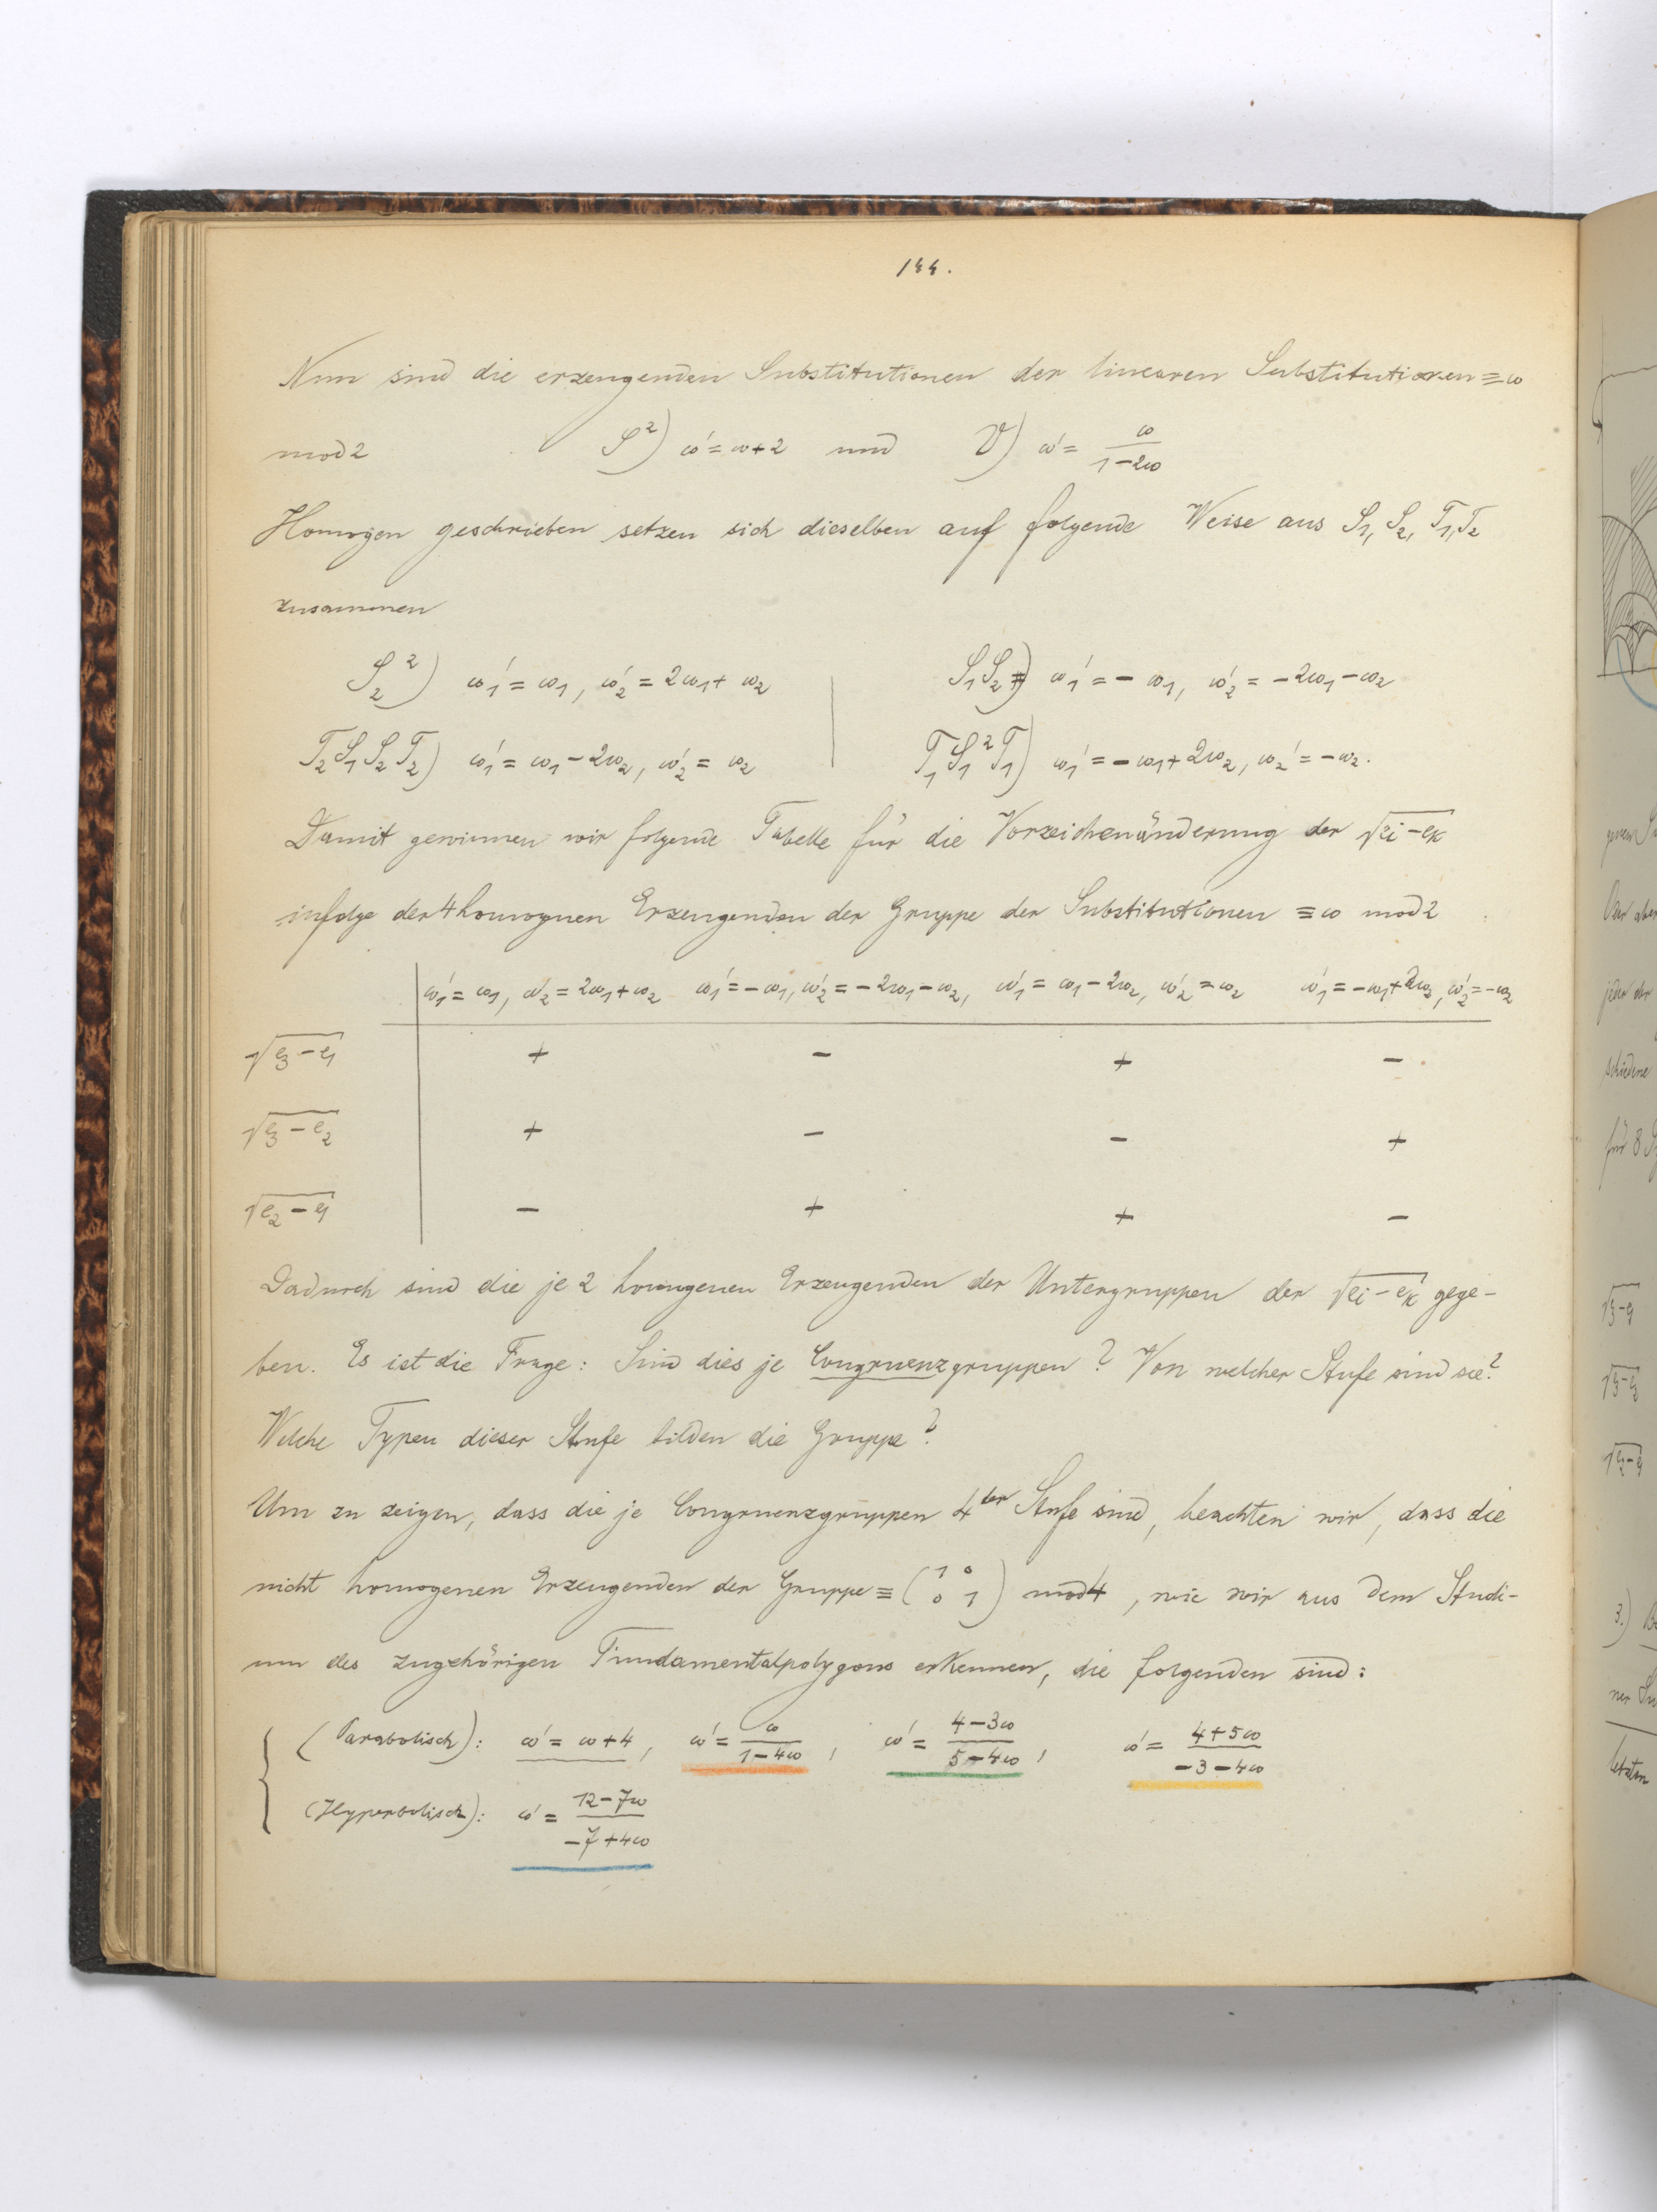 144.
Nun sind die erzeugenden Substitutionen der linearen Substitutionen ≡ ω
mod 2 S²) ω' = ω+2 und V) ω' = ω/(1−2ω)
Homogen geschrieben setzen sich dieselben auf folgende Weise aus S₁, S₂, T₁, T₂
zusammen
S₂²) ω₁' = ω₁, ω₂' = 2ω₁ + ω₂ | S₁S₂) ω₁' = − ω₁, ω₂' = −2ω₁−ω₂
T₂S₁S₂T₂) ω₁' = ω₁−2ω₂, ω₂' = ω₂ | T₁S₁²T₁) ω₁' = −ω₁+2ω₂, ω₂' = −ω₂.
Damit gewinnen wir folgende Tabelle für die Vorzeichenänderung der √(ei−ek)
infolge der 4 homognen Erzeugenden der Gruppe der Substitutionen ≡ ω mod 2
ω₁' = ω₁, ω₂' = 2ω₁+ω₂ ω₁' = −ω₁, ω₂' = −2ω₁−ω₂, ω₁' = ω₁−2ω₂, ω₂' = ω₂ ω₁' = −ω₁+2ω₂, ω₂' = −ω₂
√(e₃−e₁) + − + −
√(e₃−e₂) + − − +
√(e₂−e₁) − + + −
Dadurch sind die je 2 homogenen Erzeugenden der Untergruppen der √(ei−ek) gege-
ben. Es ist die Frage: Sind dies je Congruenzgruppen? Von welcher Stufe sind sie?
Welche Typen dieser Stufe bilden die Gruppe?
Um zu zeigen, dass die je Congruenzgruppen 4ter Stufe sind, beachten wir, dass die
nicht homogenen Erzeugenden der Gruppe ≡ (1 0 / 0 1) mod 4, wie wir aus dem Studi-
um des zugehörigen Fundamentalpolygons erkennen, die folgenden sind:
(Parabolisch): ω' = ω+4, ω' = ω/(1−4ω), ω' = (4−3ω)/(5−4ω), ω' = (4+5ω)/(−3−4ω)
(Hyperbolisch): ω' = (12−7ω)/(−7+4ω)